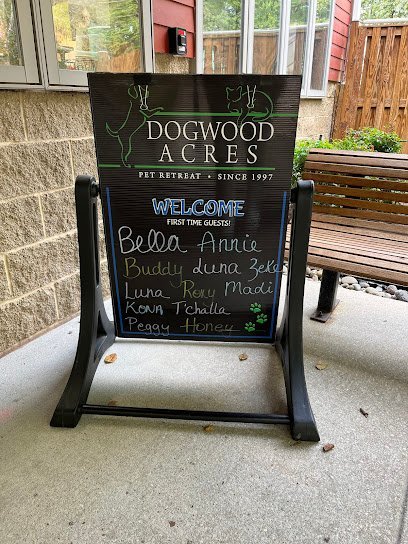 DOGWOOD
ACRES
PET RETREAT • SINCE 1997
WELCOME
FIRST TIME GUESTS!
Bella Annie
Buddy Luna Zeke
Luna Roxu Madi
Kona T'challa
Peggy Honey